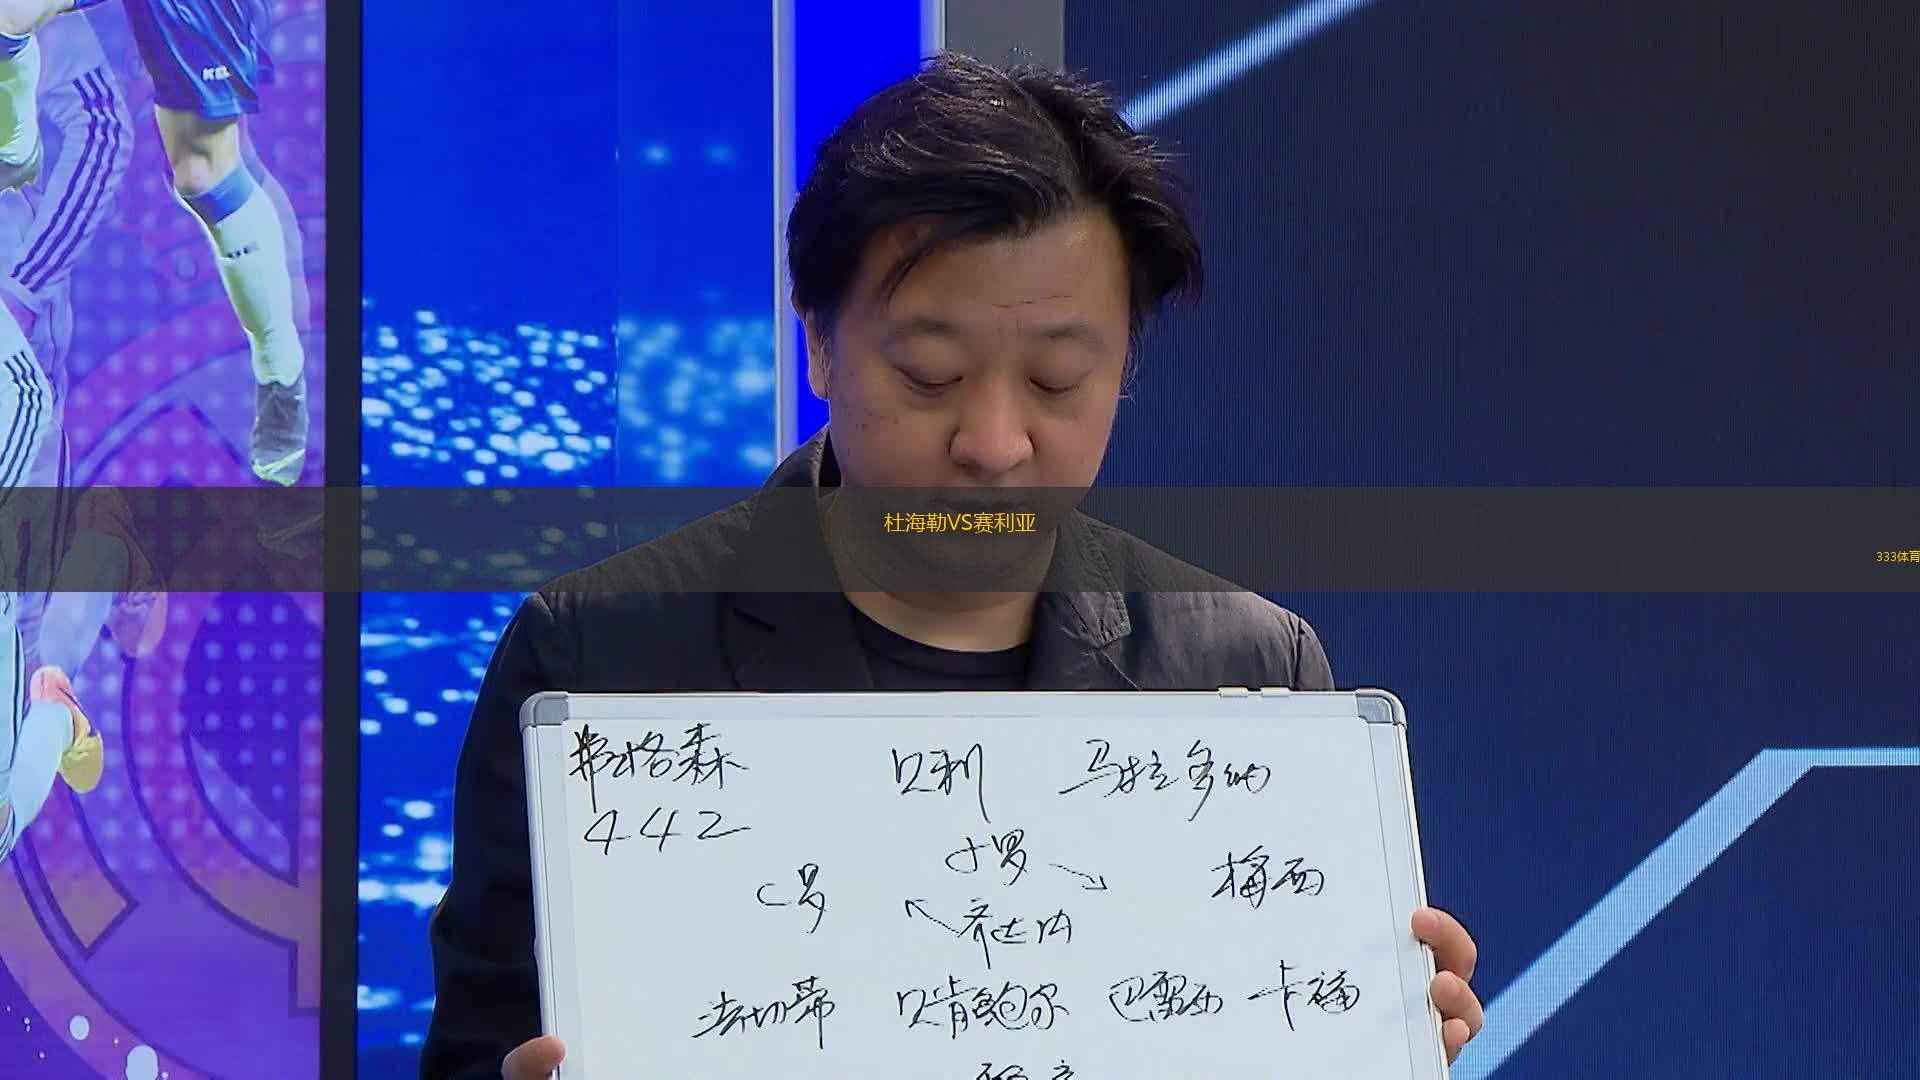 杜海勒VS赛利亚
333体育
弗格森 贝利 马拉多纳
442
小罗
C罗 梅西
齐达内
法切蒂 贝肯鲍尔 巴雷西 卡福